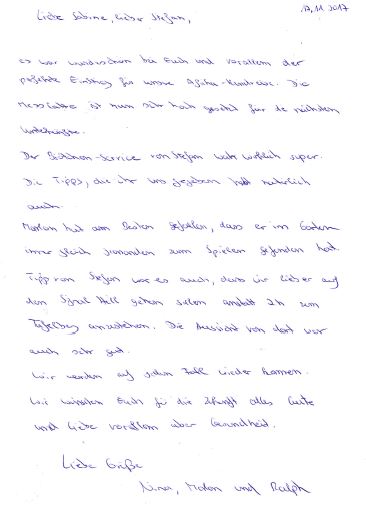 17.11.2017
Liebe Sabine, lieber Stefan,
es war wunderschön bei Euch und vorallem der
perfekte Einstieg für unsere Afrika-Rundreise. Die
Messlatte ist nun sehr hoch gesetzt für die nächsten
Unterkünfte.
Der Brötchen-Service von Stefan war wirklich super.
Die Tipps, die ihr uns gegeben habt natürlich
auch.
hat am Besten gefallen, dass er im Garten
immer gleich jemanden zum Spielen gefunden hat.
Tipp von Stefan war es auch, dass wir lieber auf
den Signal Hill gehen sollen anstatt 2h zum
Tafelberg anzustehen. Die Aussicht von dort war
auch sehr gut.
Wir werden auf jeden Fall wieder kommen.
Wir wünschen Euch für die Zukunft alles Gute
und Liebe vorallem aber Gesundheit.
Liebe Grüße
Nina, und Ralph